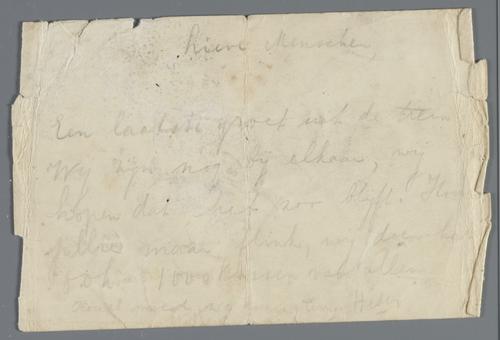 Lieve Menschen,
Een laatste groet uit de trein
Wij zijn nog bij elkaar, wij
hopen dat het zoo blijft! Hou
jullie maar flink, wij doen het
ook. 1000 kussen van allen
Houd moed, wij